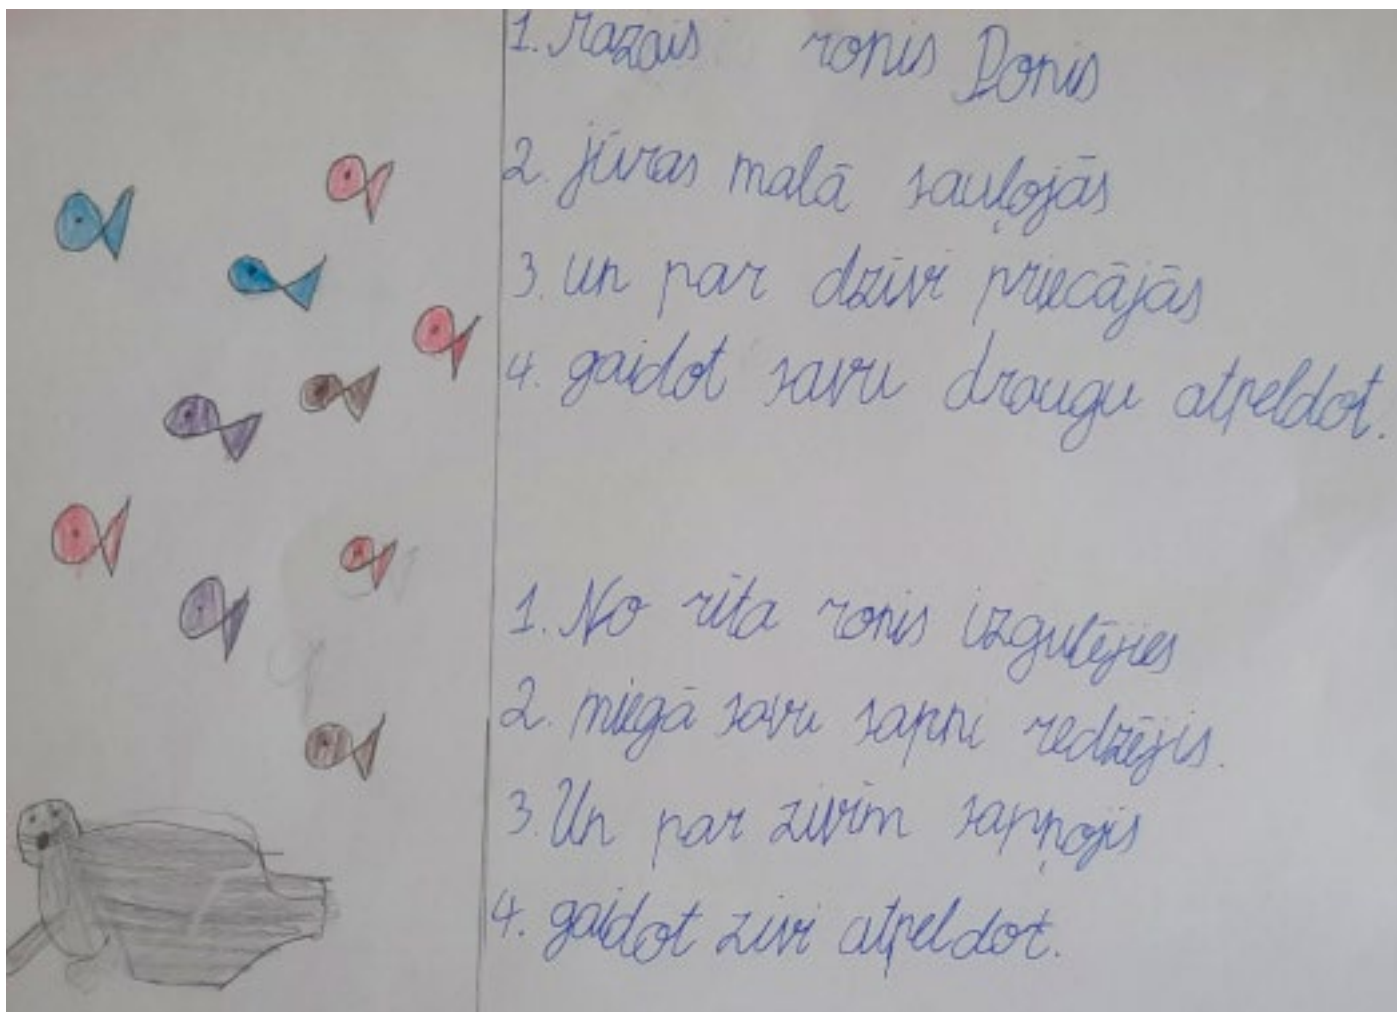 1. Mazais ronis Ponis
2. jūras malā sauļojās
3. un par dzīvi priecājās
4. gaidot savu draugu atpeldot.
1. No rīta ronis izgulējies
2. miegā savu sapni redzējis.
3. Un par zivīm sapņojis
4. gaidot zivi atpeldot.